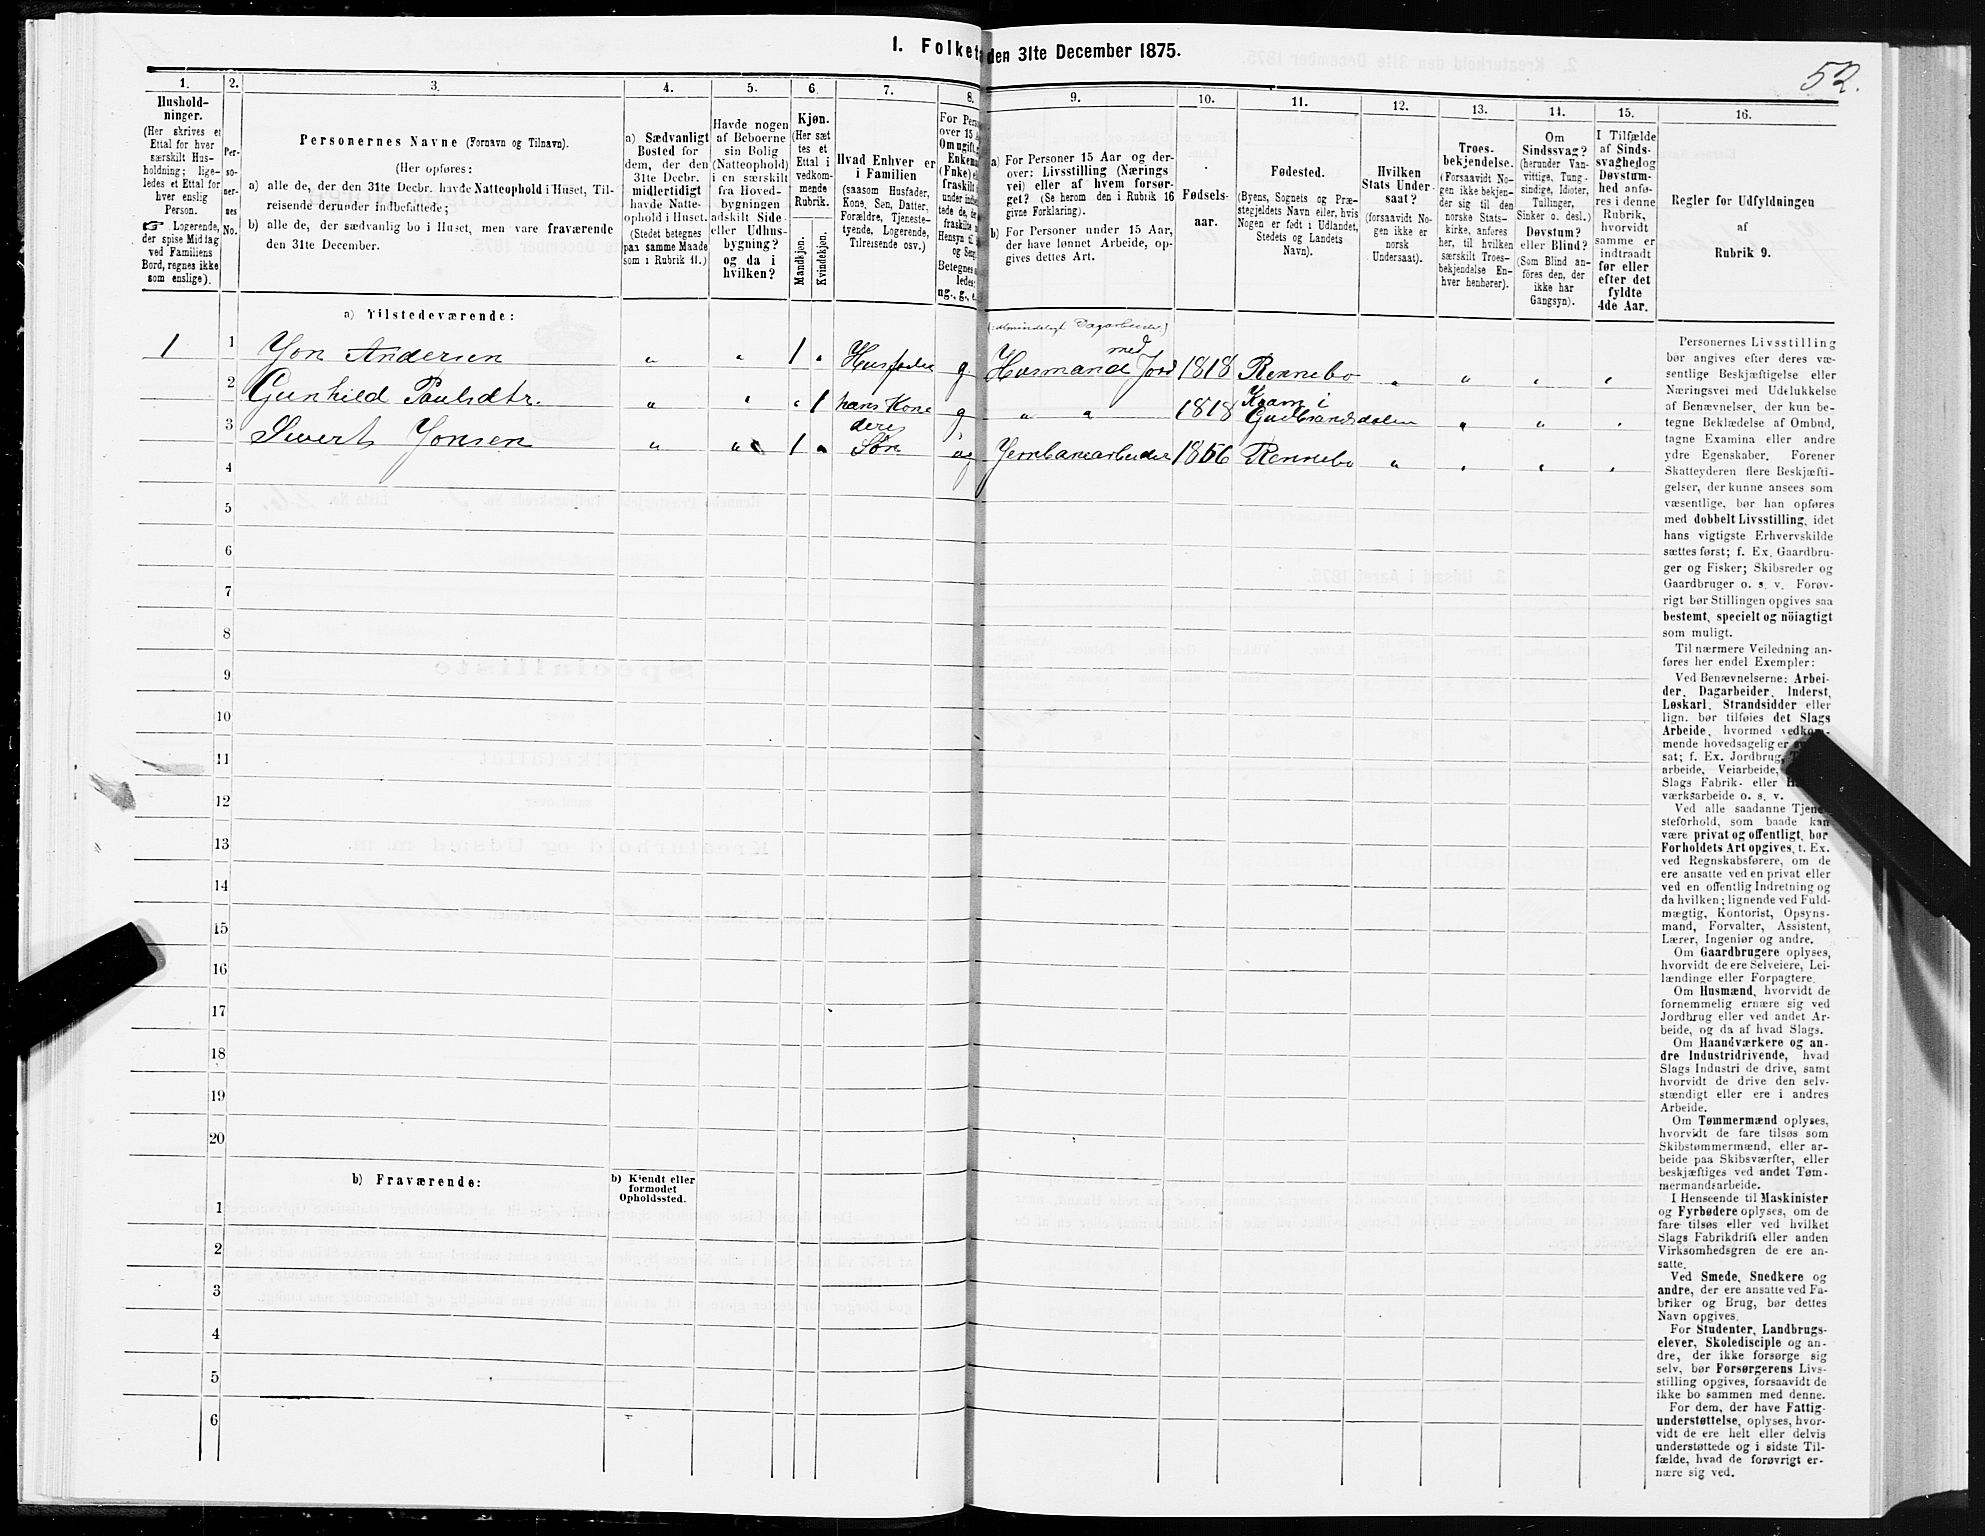 I. Folket den 31te December 1875.
52.
1.
2.
3.
4.
5.
6.
7.
8.
9.
10.
11.
12.
13.
14.
15.
16.
Hushold-
ninger.
(Her skrives et
Ettal for hver
særskilt Hus-
holdning; lige-
ledes et Ettal for
hver enslig
Person.
☞ Logerende,
der spise Middag
ved Familiens
Bord, regnes ikke
som enslige).
Per-
so-
ner-
nes
No.
Personernes Navne (Fornavn og Tilnavn).
(Her opføres:
a) alle de, der den 31te Decbr. havde Natteophold i Huset, Til-
reisende derunder indbefattede;
b) alle de, der sædvanlig bo i Huset, men vare fraværende
den 31te December.
a) Sædvanligt
Bosted for
dem, der den
31te Decbr.
midlertidigt
havde Natte-
ophold i Huset.
(Stedet betegnes
paa samme Maade
som i Rubrik 11.)
Havde nogen
af Beboerne
sin Bolig
(Natteophold)
i en særskilt
fra Hoved-
bygningen
adskilt Side-
eller Udhus-
bygning?
og da i
hvilken?
Kjøn.
(Her sæt
tes et
Ettal i
vedkom-
mende
Rubrik.
Mandkjøn.
Kvindekjøn.
Hvad Enhver er
i Familien
(saasom Husfader,
Kone, Søn, Datter,
Forældre, Tjeneste-
tyende, Logerende,
Tilreisende osv.)
For Pers
over 15 A
Om ugift, g
Enkema
(Enke) e
fraskilt
under indbe
tede de, d
fraskilte
Hensyn til
og Seng
Betegnes s
ledes:
ng., g., e.
a) For Personer 15 Aar og der-
over: Livsstilling (Nærings
vei) eller af hvem forsør-
get? (Se herom den i Rubrik 16
givne Forklaring).
b) For Personer under 15 Aar,
der have lønnet Arbeide, op-
gives dettes Art.
Fødsels-
aar.
Fødested.
(Byens, Sognets og Præ-
stegjeldets Navn eller, hvis
Nogen er født i Udlandet,
Stedets og Landets
Navn).
Hvilken
Stats Under-
saat?
(forsaavidt No-
gen ikke er
norsk
Undersaat).
Troes-
bekjendelse.
(Forsaavidt No-
gen ikke bekjen-
der sig til den
norske Stats-
kirke, anføres
her, til hvilken
særskilt Troes-
bekjendelse En-
hver henhører).
Om
Sindssvag?
(herunder Van-
vittige, Tung-
sindige, Idioter,
Tullinger,
Sinker o. desl.)
Døvstum?
eller Blind?
(Som Blind an-
føres den, der
ikke har
Gangsyn).
I Tilfælde
af Sinds-
svaghed og
Døvstum-
hed anfø-
res i denne
Rubrik,
hvorvidt
samme er
indtraadt
før eller
efter det
fyldte
4de Aar.
Regler for Udfyldningen
af
Rubrik 9.
a) Tilstedeværende:
(:almindeligt Dagarbeide:)
1 1 Jon Andersen " " 1 " Husfader g. Husmand med Jord 1818 Rennebo " " " "
2 Gunhild Paulsdtr. " " " 1 hans Kone g " " 1818 Kvam i Gudbrandsdalen " " "
3 Sivert Jonsen " " 1 " deres Søn ug Jernbanearbeider 1856 Rennebo " " " "
4
5
6
7
8
9
10
11
12
13
14
15
16
17
18
19
20
b) Fraværende:
b) Kjendt eller
formodet
Opholdssted.
1
2
3
4
5
6
Personernes Livsstilling
bør angives efter deres væ-
sentlige Beskjæftigelse eller
Næringsvei med Udelukkelse
af Benævnelser, der kun be-
tegne Beklædelse af Ombud,
tagne Examina eller andre
ydre Egenskaber. Forener
Skatteyderen flere Beskjæfti-
gelser, der kunne ansees som
væsentlige, bør han opføres
med dobbelt Livsstilling, idet
hans vigtigste Erhvervskilde
sættes først; f. Ex. Gaardbru-
ger og Fisker; Skibsreder og
Gaardbruger o. s. v. Forøv-
rigt bør Stillingen opgives saa
bestemt, specielt og nöiagtigt
som muligt.
Til nærmere Veiledning an-
føres her endel Exempler:
Ved Benævnelserne: Arbei-
der, Dagarbeider, Inderst,
Løskarl, Strandsidder eller
lign. bør tilføies det Slags
Arbeide, hvormed vedkom-
mende hovedsagelig er
sat; f. Ex. Jordbrug,
arbeide, Veiarbeide,
Slags Fabrik- eller
værksarbeide o. s. v.
Ved alle saadanne Tjene-
steforhold, som baade kan
være privat og offentligt, bør
Forholdets Art opgives, t. Ex.
ved Regnskabsførere, om de
ere ansatte ved en privat eller
ved en offentlig Indretning og
da hvilken; lignende ved Fuld-
mægtig, Kontorist, Opsyns-
mand, Forvalter, Assistent,
Lærer, Ingeniør og andre.
Om Gaardbrugere oplyses,
hvorvidt de ere Selveiere, Lei-
lændinge eller Forpagtere.
Om Husmænd, hvorvidt de
fornemmelig ernære sig ved
Jordbrug eller ved andet Ar-
beide, og da af hvad Slags.
Om Haandværkere og an-
dre Industridrivende, hvad
Slags Industri de drive, samt
hvorvidt de drive den selv-
stændigt eller ere i andres
Arbeide.
Om Tømmermænd oplyses,
hvorvidt de fare tilsøs som
Skibstømmermænd, eller ar-
beide paa Skibsværfter, eller
beskjæftiges ved andet Tøm-
mermandsarbeide.
I Henseende til Maskinister
og Fyrbødere oplyses, om de
fare tilsøs eller ved hvilket
Slags Fabrikdrift eller anden
Virksomhedsgren de ere an-
satte.
Ved Smede, Snedkere og
andre, der ere ansatte ved Fa-
briker og Brug, bør dettes
Navn opgives.
For Studenter, Landbrugs-
elever, Skoledisciple og an-
dre, der ikke forsørge sig
selv, bør Forsørgerens Livs-
stilling opgives, forsaavidt de
ikke bo sammen med denne.
For dem, der have Fattig-
understøttelse, oplyses, hvor-
vidt de ere helt eller delvis
understøttede og i sidste Til-
fælde, hvad de forøvrigt er-
nære sig ved.